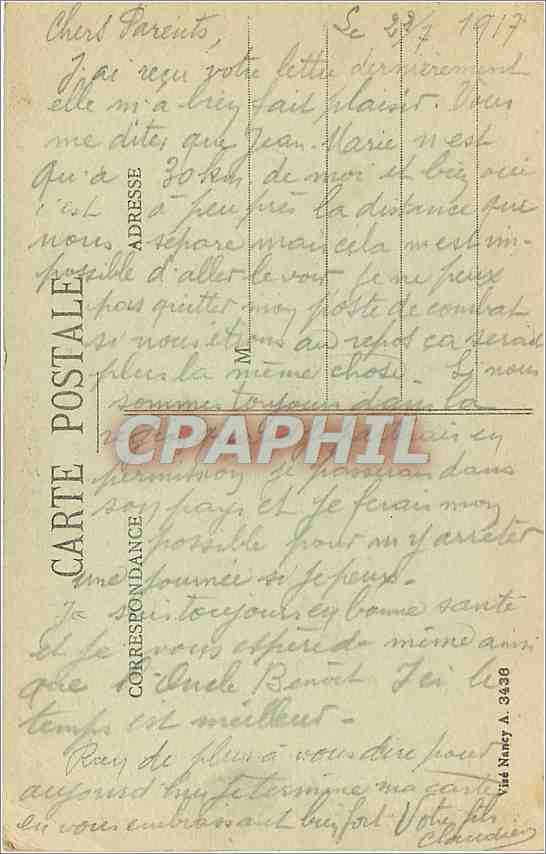 Chers Parents, Le 23/7 1917
J'ai reçu votre lettre dernièrement
elle m'a bien fait plaisir. Vous
me dites que Jean-Marie n'est
qu'à 30 km de moi et bien oui
c'est à peu près la distance que
nous sépare mais cela m'est im-
possible d'aller le voir je ne peux
pas quitter mon poste de combat
si nous étions au repos ça serait
plus la même chose. Si nous
sommes toujours dans la
en
permission je passerais dans
son pays et je ferais mon
possible pour m'y arrêter
une journée si je peux.
Je suis toujours en bonne santé
et je vous espère de même ainsi
que l'Oncle Benoît Ici le
temps est meilleur.
Rien de plus à vous dire pour
aujourd'hui je termine ma carte
en vous embrassant bien fort Votre fils
Claudien
CARTE POSTALE
CORRESPONDANCE
ADRESSE
M
Visé Nancy A. 3436
CPAPHIL